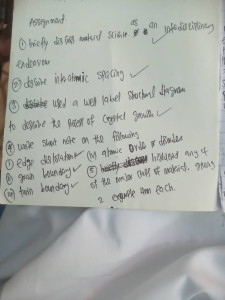 Assignment
① briefly discuss material science as an interdisciplinary
endeavour
② describe interatomic spacing
③ used a well label structural diagram
to describe the process of crystal growth
④ write short note on the following
i) edge dislocation iv) atomic order & disorder
ii) grain boundary ⑤ highlight any 4
iii) twin boundary of the major class of material. giving
2 example from each.